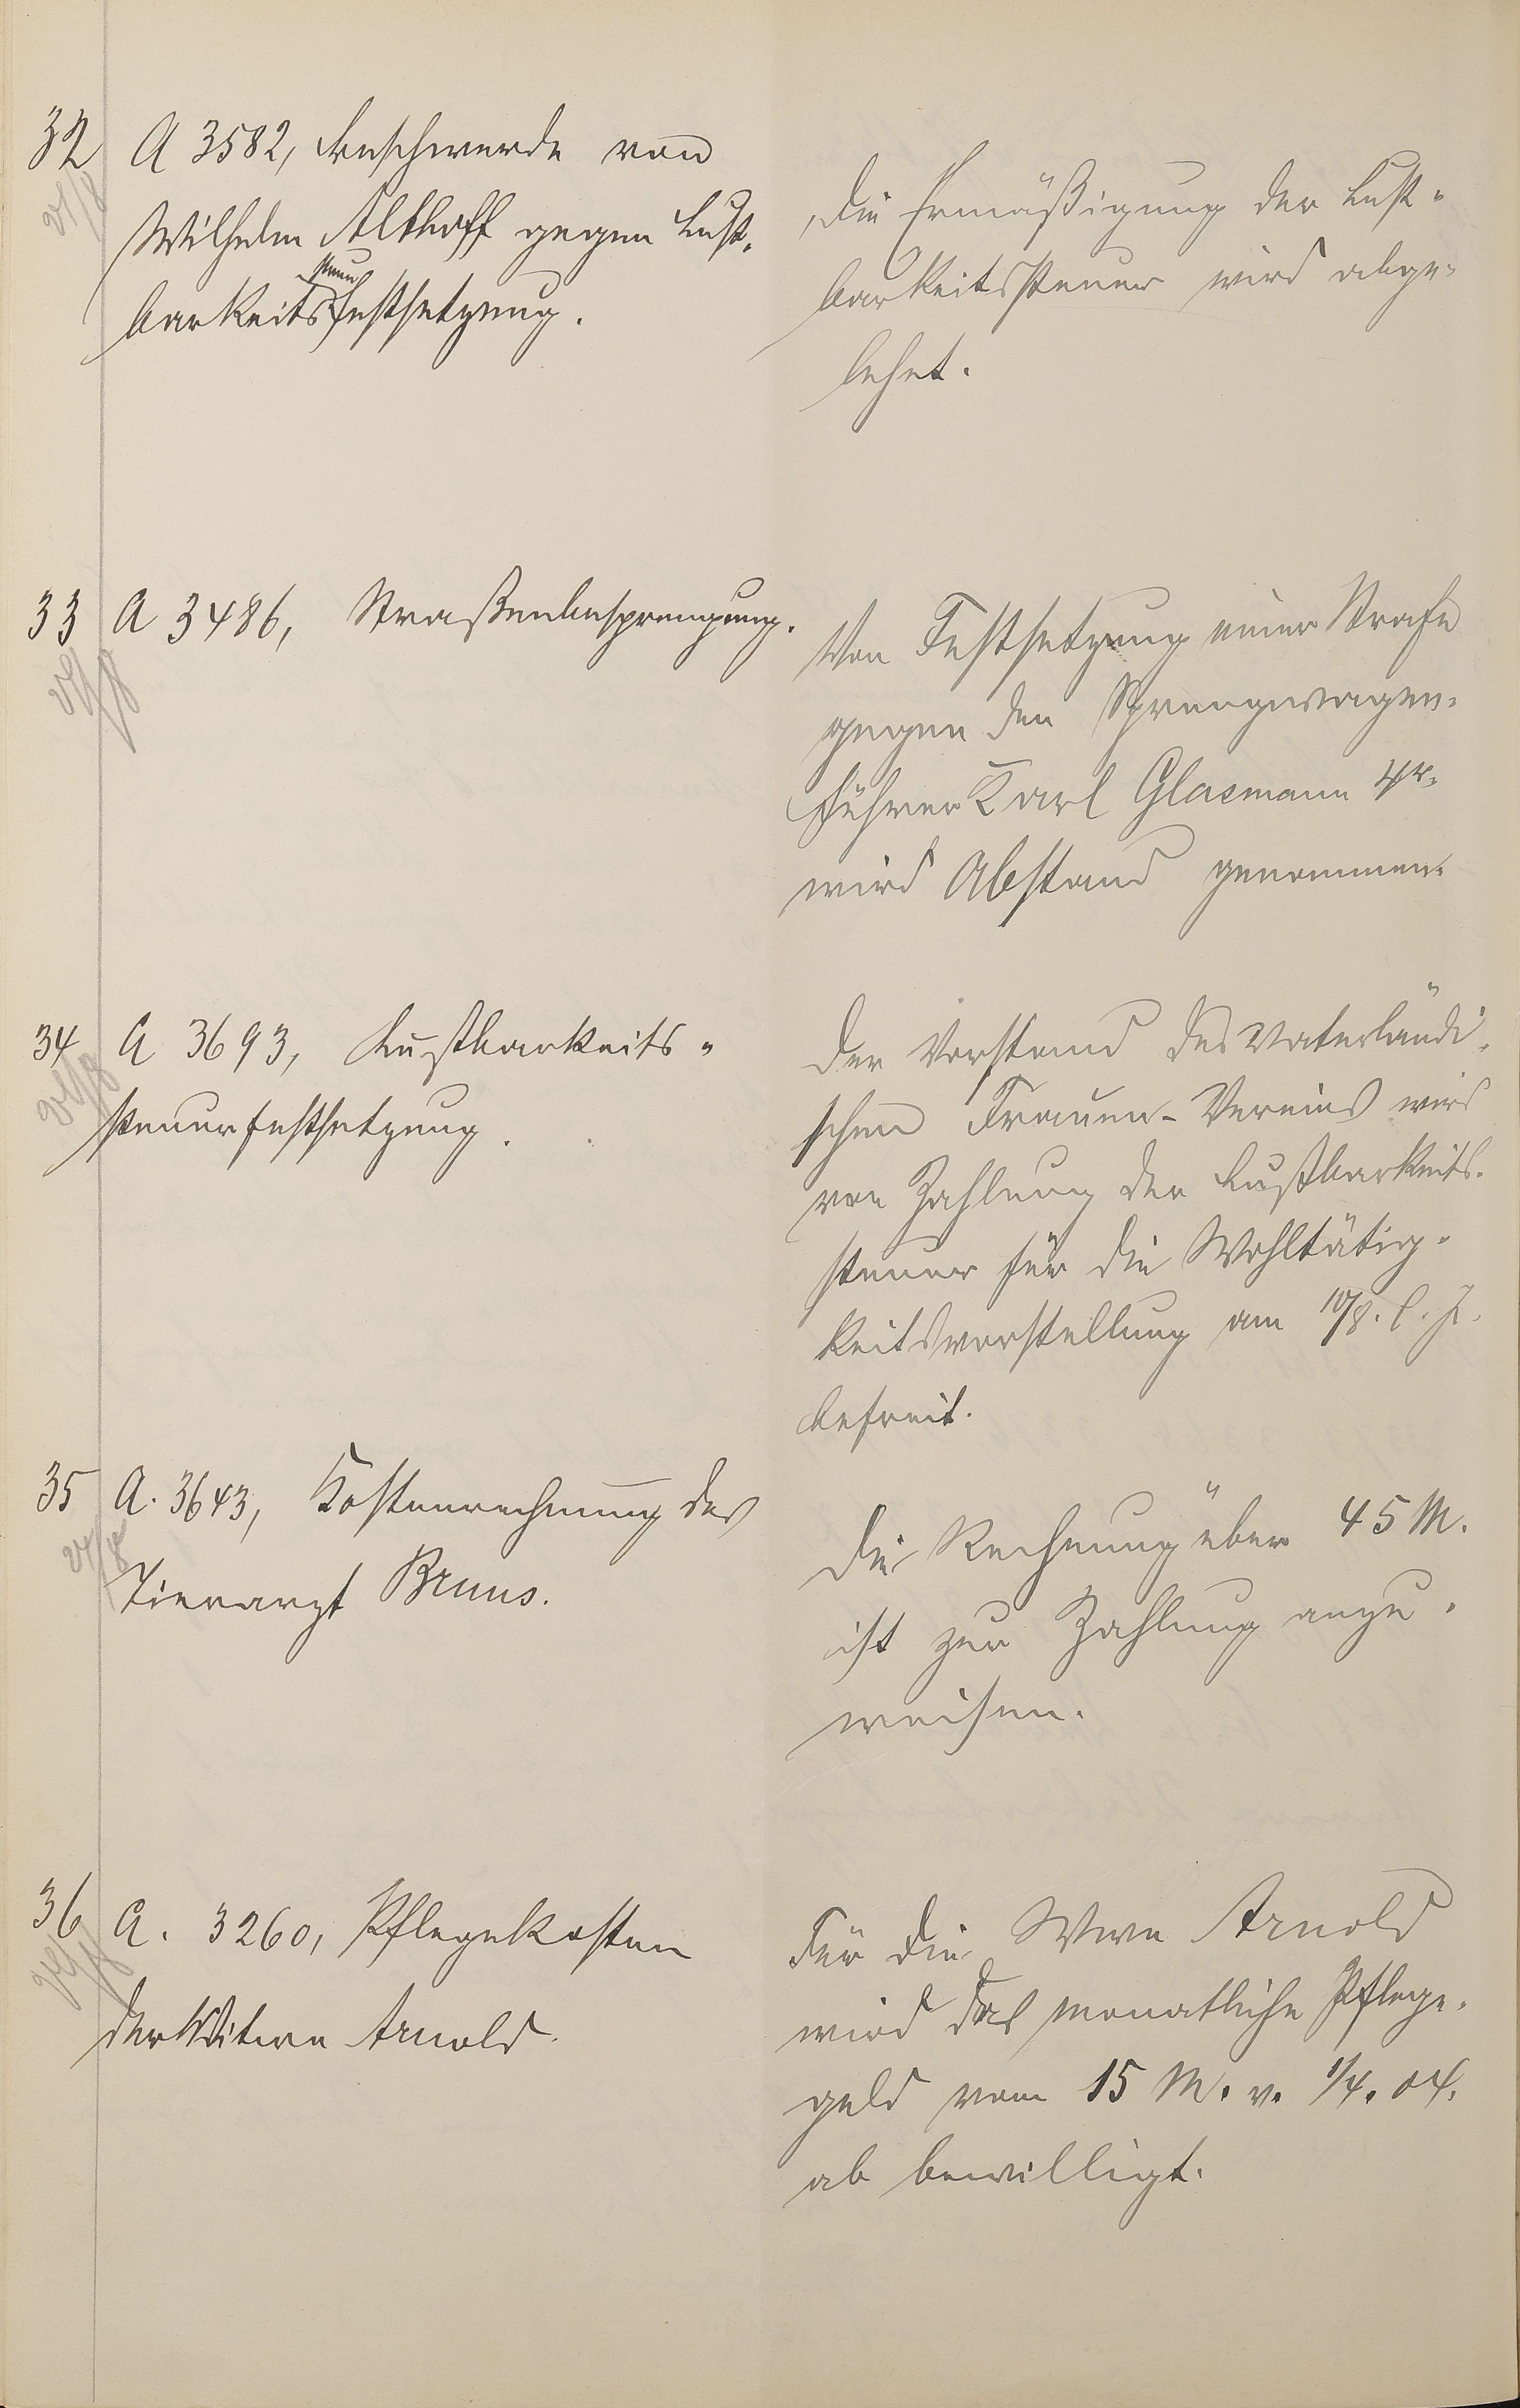 32 A 3582, Beschwerde von
Wilhelm Althoff gegen Lust-
steuer
barkeitsfestsetzung.
Die Ermäßigung der Lust-
barkeitssteuer wird abge-
lehnt.
33 A 3486, Straßenbesprengung.
Von Festsetzung einer Strafe
gegen den Sprengwagen-
führer Karl Glasmann
wird Abstand genommen.
34 A 3693, Lustbarkeits-
steuerfestsetzung.
Der Vorstand des Vaterländi-
schen Frauen-Vereins wird
von Zahlung der Lustbarkeits-
steuer für die Wohltätig-
keitsvorstellung am 10/8. l. J.
befreit.
35 A. 3643, Kostenrechnung des
Tierarzt Bruns.
Die Rechnung über 45 M.
ist zur Zahlung anzu-
weisen.
36 A. 3260, Pflegekosten
der Witwe Arnold.
Für die Wwe Arnold
wird das monatliche Pflege-
geld von 15 M. v. 1/4. 04.
ab bewilligt.